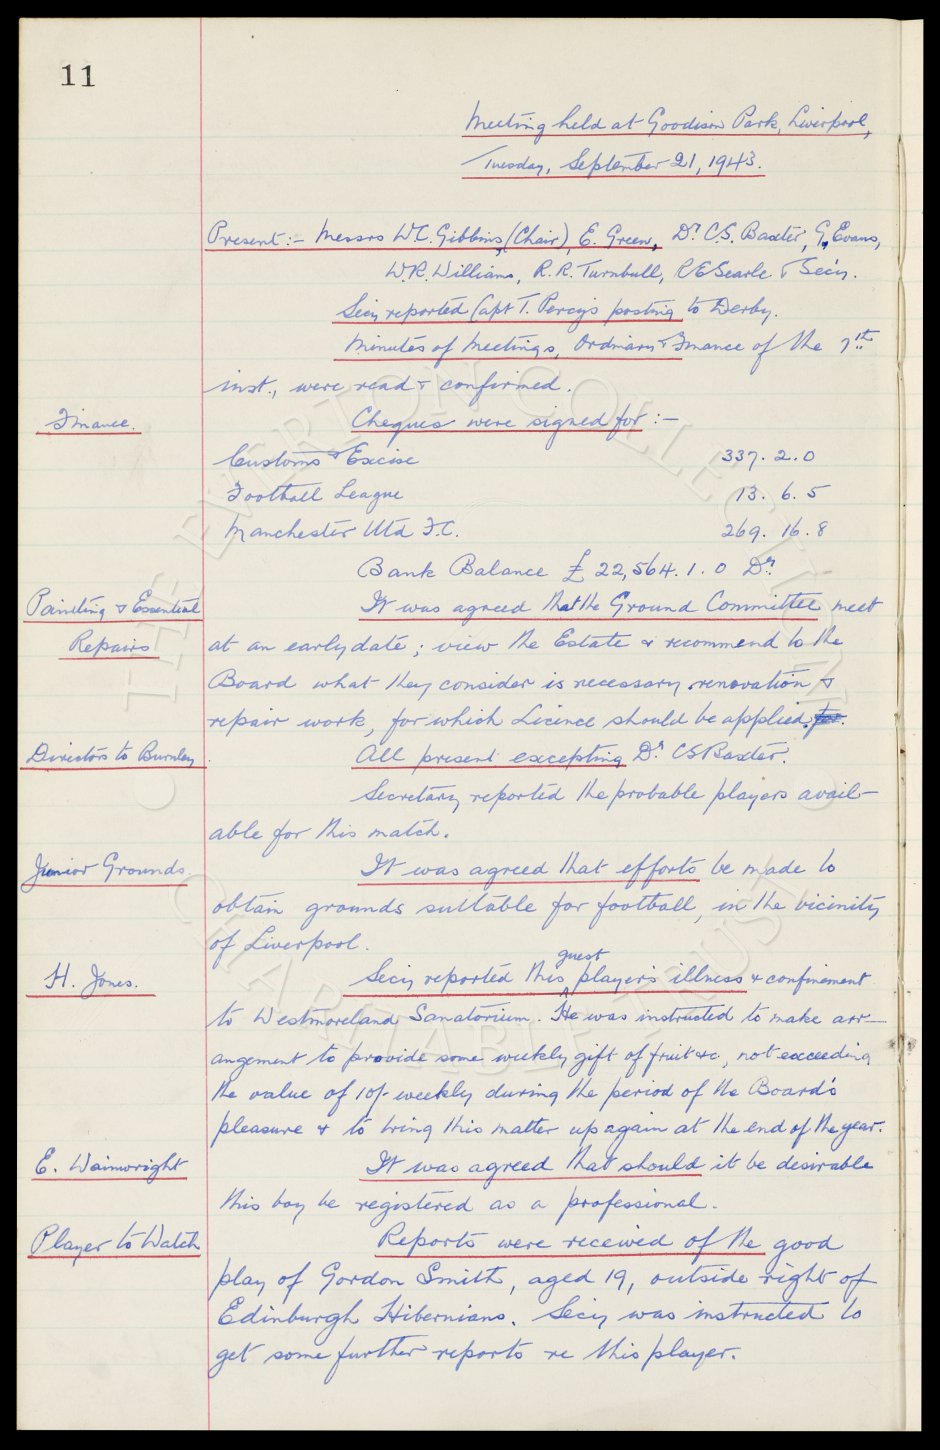 11
Meeting held at Goodison Park, Liverpool,
Tuesday, September 21, 1943.
Present:- Messrs W.C. Gibbins, (Chair), E. Green, Dr. C.S. Baxter, G. Evans,
W.R. Williams, R.R. Turnbull, R E Searle & Secy.
Secy reported Capt T. Percy's posting to Derby.
Minutes of Meetings, Ordinary & Finance of the 7th
inst., were read & confirmed.
Finance. Cheques were signed for :-
Customs & Excise 337. 2. 0
Football League 13. 6. 5
Manchester Utd F.C. 269. 16. 8
Bank Balance £ 22,564. 1. 0 Dr.
Painting & Essential It was agreed that the Ground Committee meet
Repairs at an early date; view the Estate & recommend to the
Board what they consider is necessary renovation &
repair work, for which Licence should be applied. for.
Directors to Burnley All present excepting Dr. CS Baxter.
Secretary reported the probable players avail-
able for this match.
Junior Grounds. It was agreed that efforts be made to
obtain grounds suitable for football, in the vicinity
of Liverpool.
H. Jones. Secy reported this guest player's illness & confinement
to Westmoreland Sanatorium. He was instructed to make arr-
angement to provide some weekly gift of fruit &c, not exceeding
the value of 10/- weekly during the period of the Board's
pleasure & to bring this matter up again at the end of the year.
E. Wainwright It was agreed that should it be desirable
this boy be registered as a professional.
Player to Watch Reports were received of the good
play of Gordon Smith, aged 19, outside right of
Edinburgh Hibernians. Secy was instructed to
get some further reports re this player.
© THE EVERTON COLLECTION
CHARITABLE TRUST